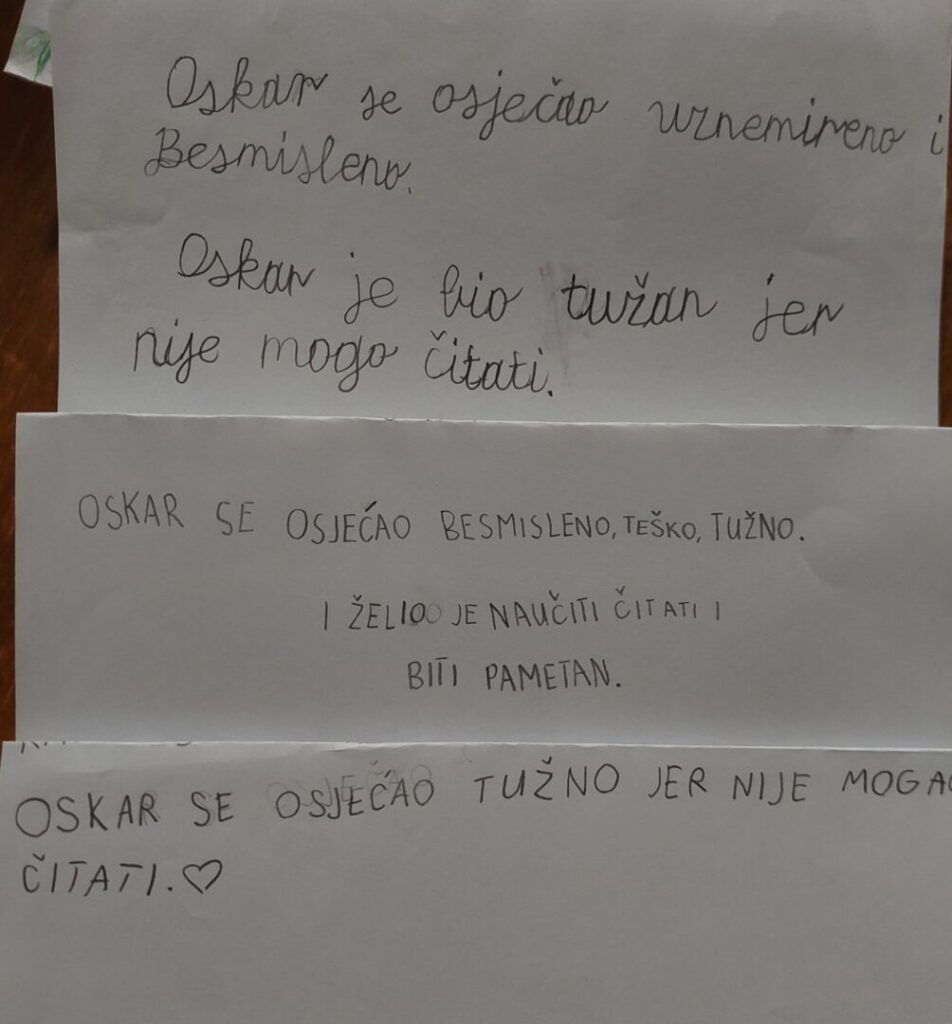 Oskar se osječao uznemireno i
Besmisleno.
Oskar je bio tužan jer
nije mogo čitati.
OSKAR SE OSJEĆAO BESMISLENO, TEŠKO, TUŽNO.
I ŽELIO JE NAUČITI ČITATI I
BITI PAMETAN.
OSKAR SE OSJEĆAO TUŽNO JER NIJE MOGAO
ČITATI.♡